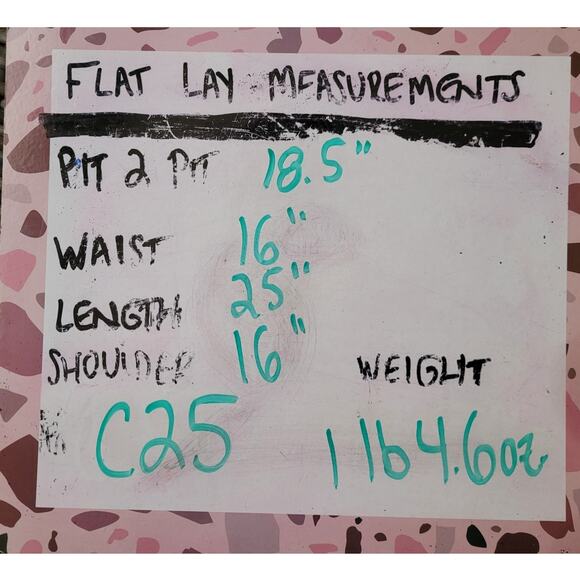 FLAT LAY MEASUREMENTS
PIT 2 PIT 18.5"
WAIST 16"
LENGTH 25"
SHOULDER 16"
WEIGHT
C25 1 lb 4.6oz